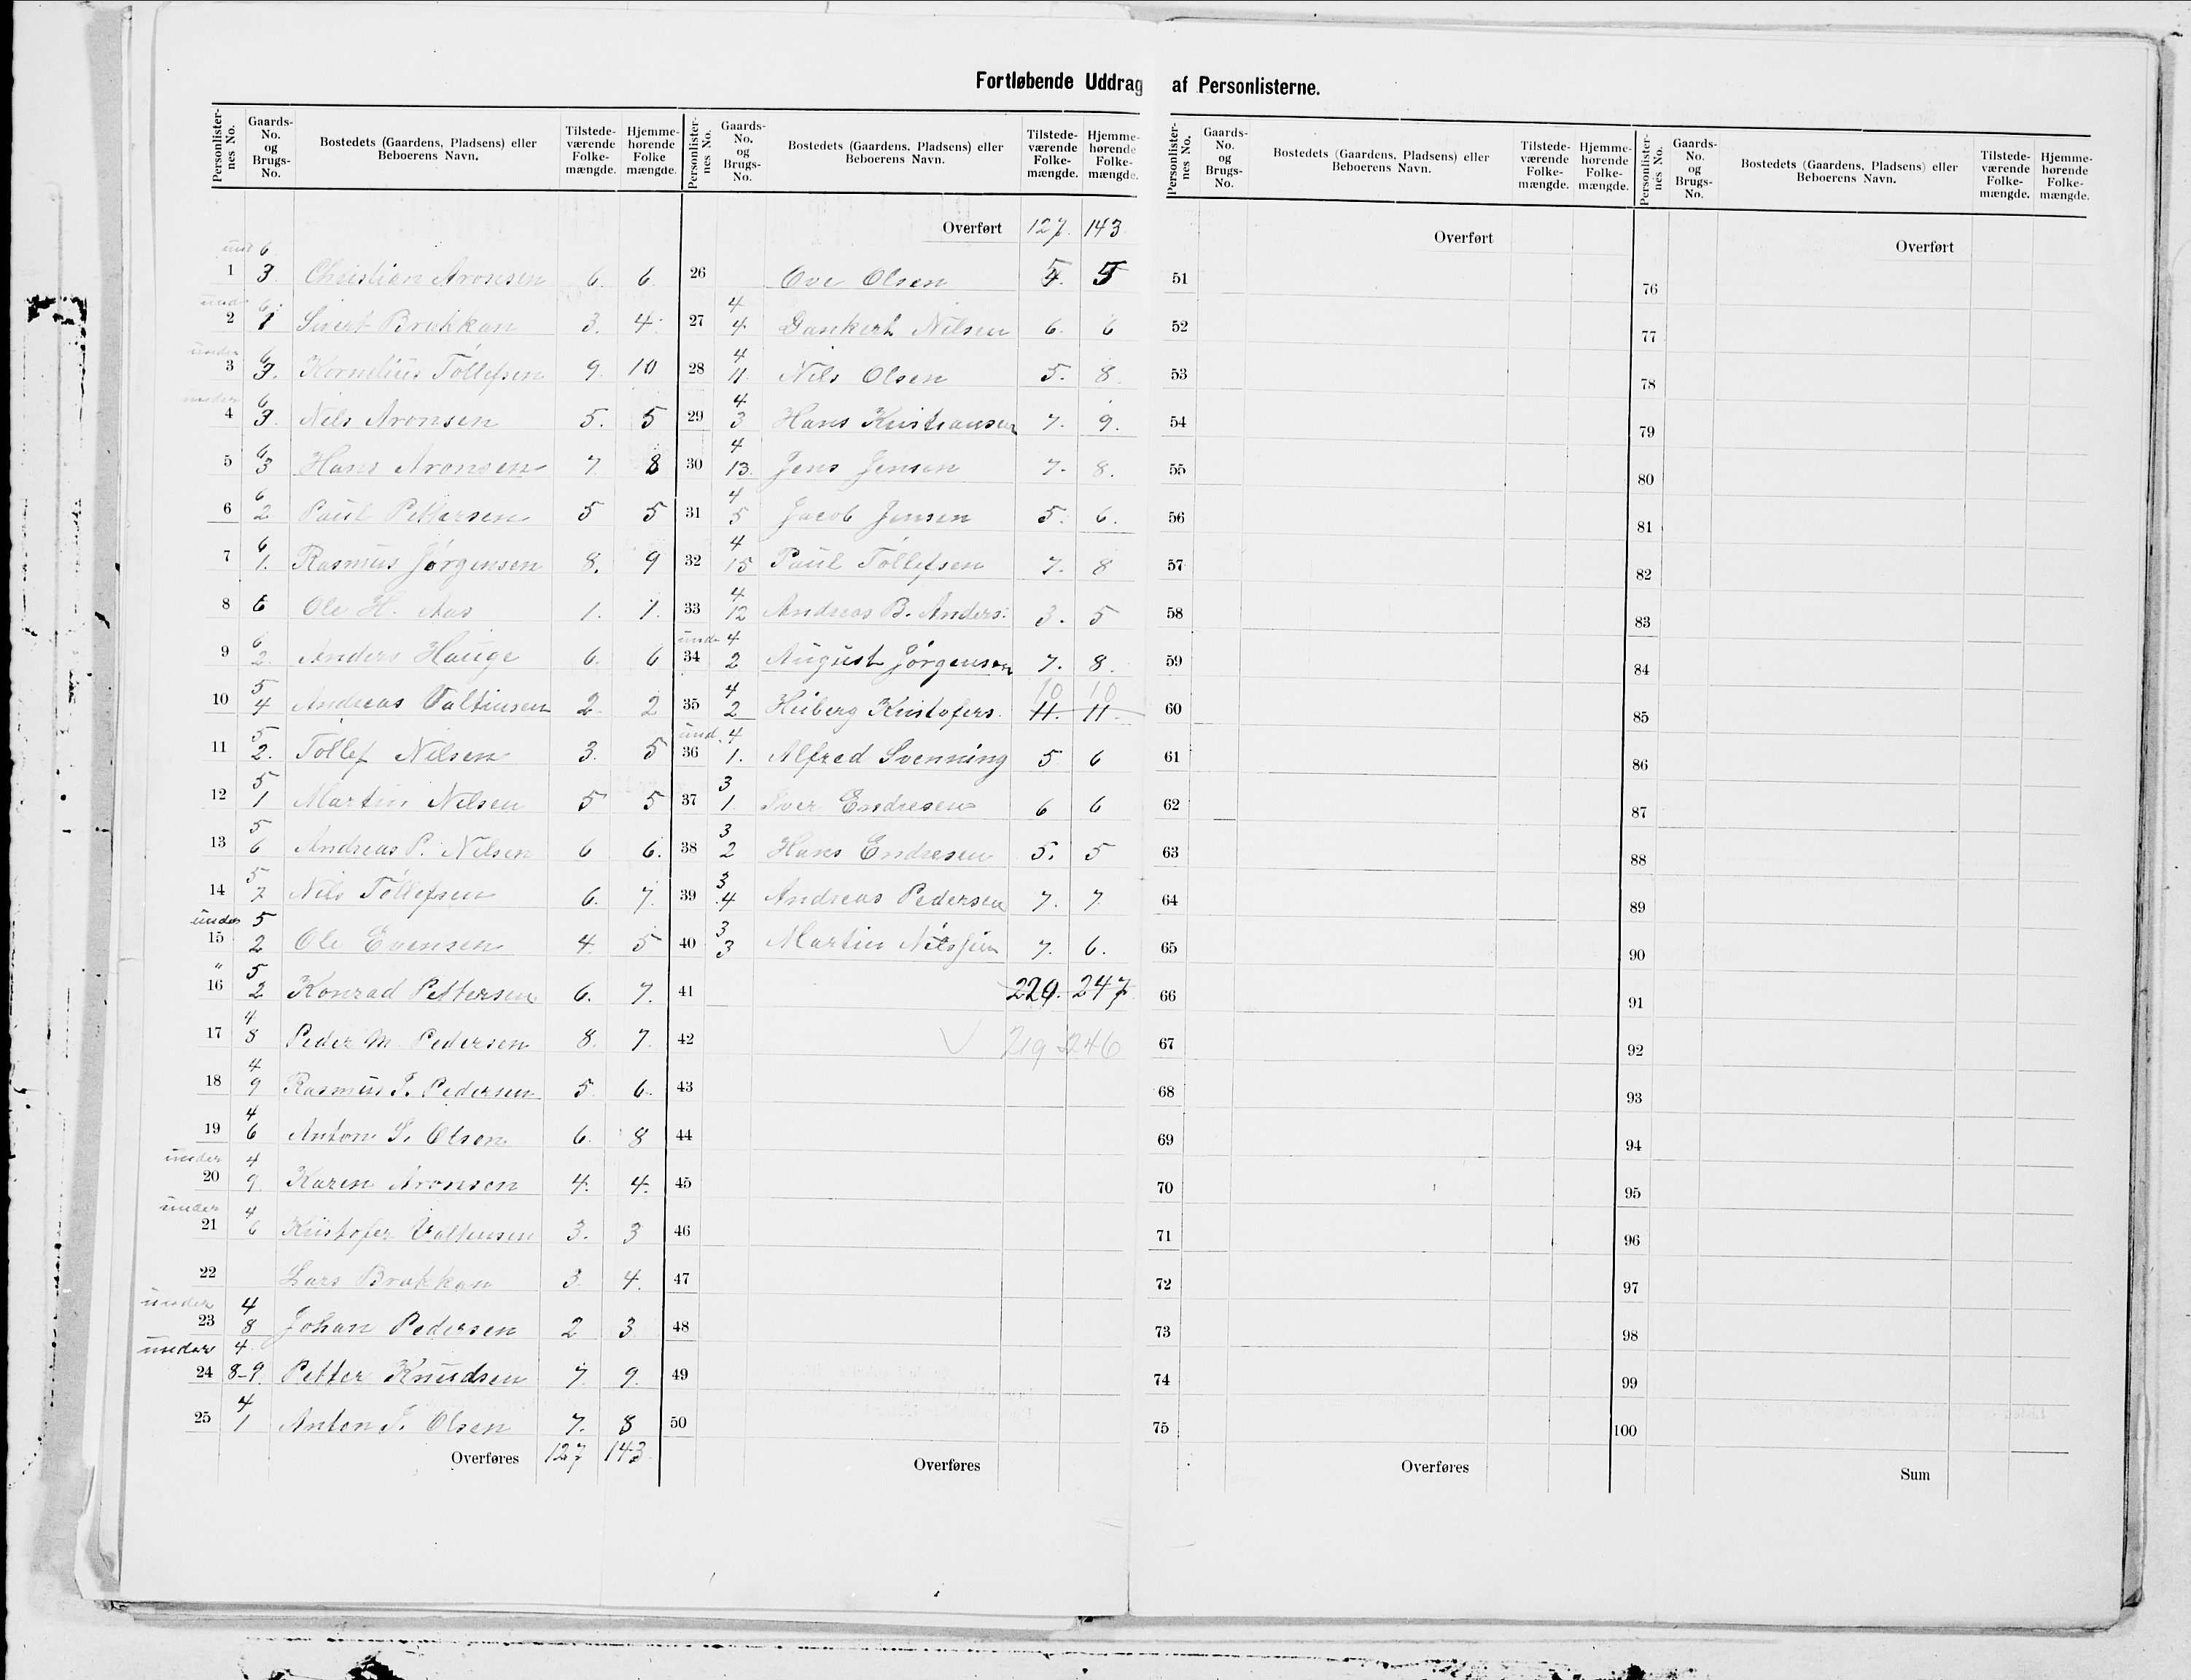 Fortløbende Uddrag af Personlisterne.
Personlister-nes No. | Gaards-No. og Brugs-No. | Bostedets (Gaardens, Pladsens) eller Beboerens Navn. | Tilstede-værende Folke-mængde. | Hjemme-hørende Folke mængde.
und 6
1 3. Christian Aronsen 6. 6.
und. 6.
2 1 Sivert Brakkan 3. 4.
under 6
3 3. Kornelius Tollefsen 9. 10
under 6
4 3. Nils Aronsen 5. 5
6
5 3 Hans Aronsen 7. 8
6
6 2 Paul Pettersen 5 5
6
7 1. Rasmus Jørgensen 8. 9
8 6 Ole H. Aas 1. 1.
6
9 2. Anders Hauge 6. 6
5
10 4 Andreas Valtinsen 2. 2
5
11 2. Tollef Nilsen 3. 5
5
12 1 Martin Nilsen 5 5
5
13 6 Andreas P. Nilsen 6 6.
5
14 7 Nils Tollefsen 6. 7.
under 5
15 2 Ole Evensen 4. 5
" 5
16 2 Konrad Pettersen 6. 7.
4
17 8 Peder M. Pedersen 8. 7.
4
18 9 Rasmus P. Pedersen 5. 6.
4
19 6 Anton S. Olsen 6. 8
under 4
20 9. Karen Aronsen 4. 4.
under 4
21 6 Kristofer Valtinsen 3. 3
22 Lars Brakkan 3. 4.
under 4
23 8 Johan Pedersen 2 3
under 4.
24 8-9. Petter Knudsen 7. 9.
4
25 1 Anton J. Olsen 7. 8
Overføres 127 143
Personlister-nes No. | Gaards-No. og Brugs-No. | Bostedets (Gaardens, Pladsens) eller Beboerens Navn. | Tilstede-værende Folke-mængde. | Hjemme-hørende Folke-mængde.
Overført 127. 143.
26 Ove Olsen 5. 5
4
27 4 Dankert Nilsen 6. 6
4
28 11. Nils Olsen 5. 8.
4
29 3 Hans Kristiansen 7. 9.
4
30 13. Jens Jensen 7. 8.
4
31 5 Jacob Jensen 5. 6.
4
32 15 Paul Tollefsen 7. 8
4
33 12 Andreas B. Anders. 3. 5
und. 4
34 2 August Jørgensen 7. 8.
4 10 10
35 2 Heiberg Kristofers. 11. 11.
und. 4
36 1. Alfred Svenning 5 6
3
37 1. Iver Endresen 6 6
3
38 2 Hans Endresen 5. 5
3
39 4 Andreas Pedersen 7. 7
3
40 3 Martin Nilssen 7. 6.
41 220. 247
42 219 246
43
44
45
46
47
48
49
50
Overføres
Personlister-nes No. | Gaards-No. og Brugs-No. | Bostedets (Gaardens, Pladsens) eller Beboerens Navn. | Tilstede-værende Folke-mængde. | Hjemme-hørende Folke-mængde.
Overført
51
52
53
54
55
56
57
58
59
60
61
62
63
64
65
66
67
68
69
70
71
72
73
74
75
Overføres
Personlister-nes No. | Gaards-No. og Brugs-No. | Bostedets (Gaardens, Pladsens) eller Beboerens Navn. | Tilstede-værende Folke-mængde. | Hjemme-hørende Folke-mængde.
Overført
76
77
78
79
80
81
82
83
84
85
86
87
88
89
90
91
92
93
94
95
96
97
98
99
100
Sum